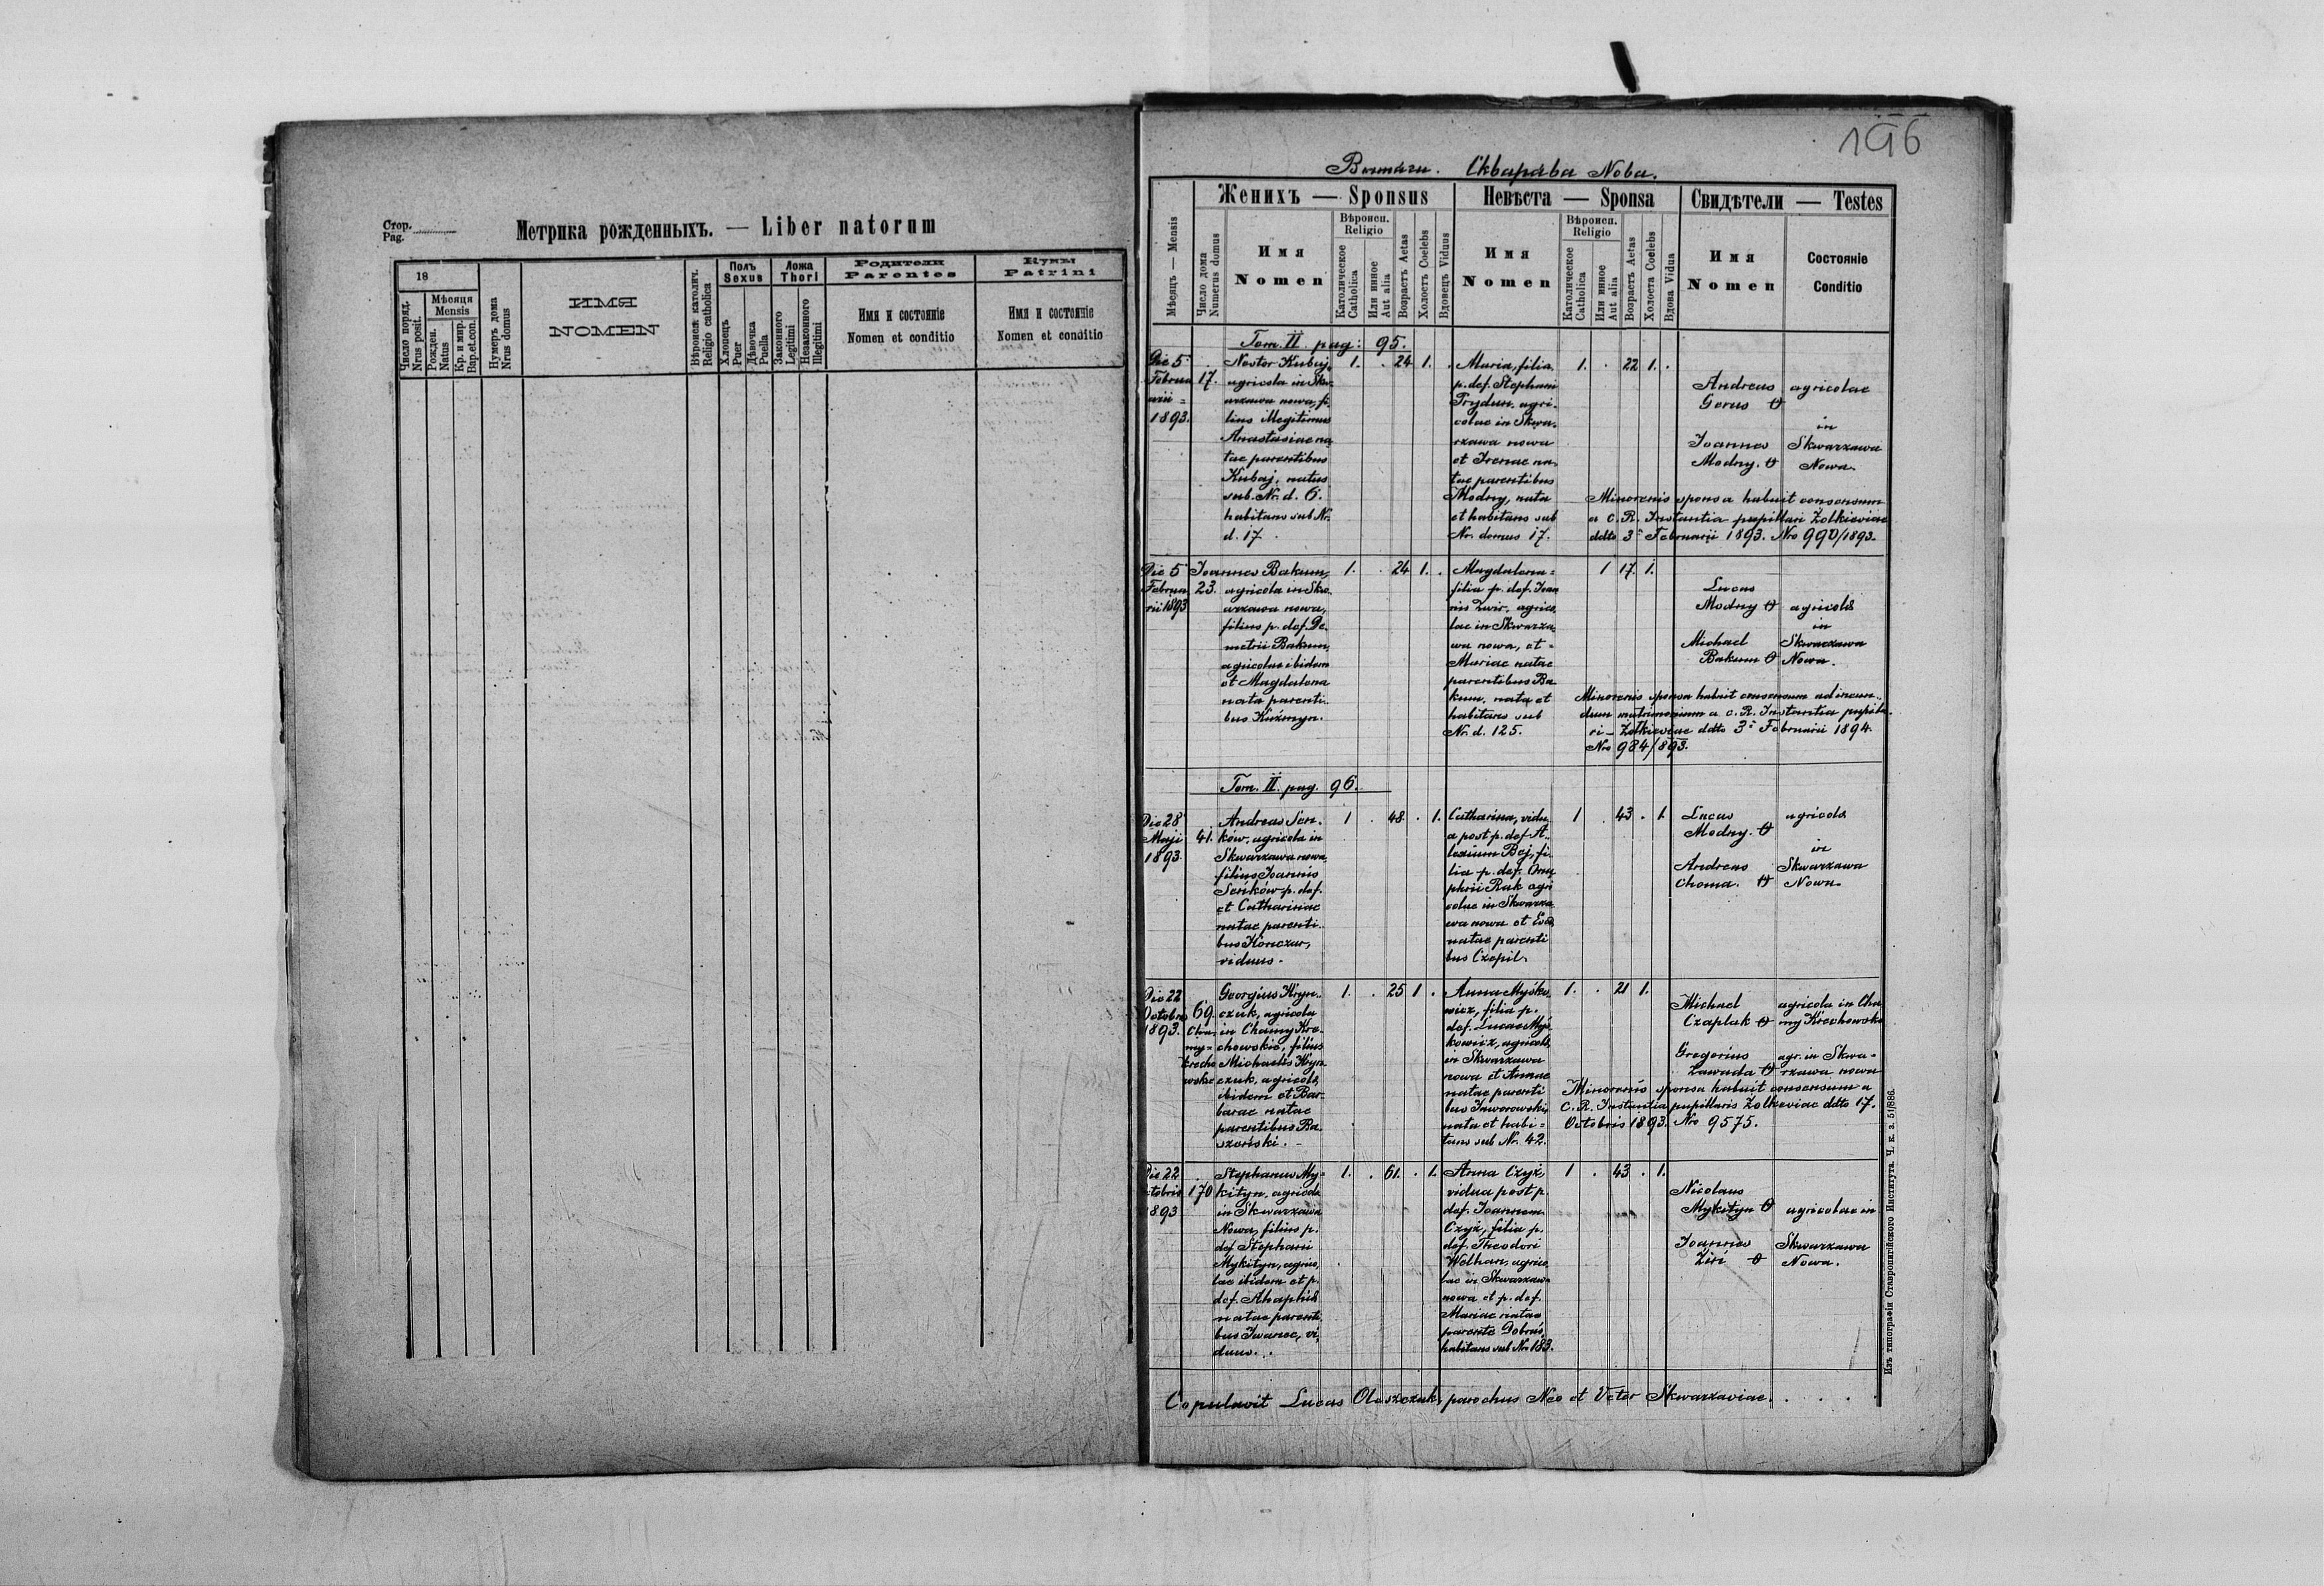 Стор.
Pag.
Метрика рожденныхъ. — Liber natorum
18
Число поряд.
Nrus posit.
Мѣсяця
Mensis
Рожден.
Natus
Кр. и мир.
Bap.et.con.
Нумеръ дома
Nrus domus
ИМЯ
NOMEN
Вѣроисп. католич.
Religio catholica
Полъ
Sexus
Хлопецъ
Puer
Дѣвочка
Puella
Ложа
Thori
Законного
Legitimi
Незаконного
Illegitimi
Родители
Parentes
Имя и состояніе
Nomen et conditio
Кумы
Patrini
Имя и состояніе
Nomen et conditio
196
Скварѣва Nова.
Мѣсяцъ — Mensis
Число дома
Numerus domus
Женихъ — Sponsus
Имя
Nomen
Вѣроисп.
Religio
Католическое
Catholica
Или инное
Aut alia
Возрастъ Aetas
Холостъ Coelebs
Вдовецъ Viduus
Невѣста — Sponsa
Имя
Nomen
Вѣроисп.
Religio
Католическое
Catholica
Или инное
Aut alia
Возрастъ Aetas
Холоста Coelebs
Вдова Vidua
Свидѣтели — Testes
Имя
Nomen
Состояніе
Conditio
Tom. II. pag: 95.
Die 5
Februa
arii =
1893.
17.
Nestor Kubaj,
agricola in Skw-
arzawa nowa, fi-
lius illegitimus
Anastasiae na
tae parentibus
Kubaj, natus
sub. Nr. d. 6.
habitans sub Nr.
d. 17.
1. . 24 1. .
Maria, filia
p. def. Stephani
Prydun, agri-
colae in Skwa-
rzawa nowa
et Irenae na-
tae parentibus
Modny, nata
et habitans sub
Nr. domus 17.
1. . 22 1. .
Andreas
Gerus
Joannes
Modny.
agricolae
in
Skwarzawa
Nowa.
Minorenis sponsa habuit consensum
a C. R. Instantia pupillari Zolkieviae
ddto 3 Februarii 1893. Nro 990/1893.
Die 5
Februa
rii 1893
23.
Joannes Bakum,
agricola in Skw-
arzawa nowa,
filius p. def. De-
metrii Bakum,
agricolae ibidem
et Magdalena
nata parenti-
bus Kuźmyn.
1. . 24 1. .
Magdalena =
filia p. def. Joan
nis Zwir, agrico
lae in Skwarza
wa nowa, et =
Mariae natae
parentibus Ba
kum, nata et
habitans sub
Nr. d. 125.
1 17. 1.
Lucas
Modny
Michael
Bakum
agricola
in
Skwarzawa
Nowa.
Minorenis sponsa habuit consensum ad ineun-
dum matrimonium a c. R. Instantia pupilla-
ri - Zolkieviae ddto 3 Februarii 1894.
Nro 984/893.
Tom. II. pag. 96.
Die 28
Maji
1893.
41.
Andreas Sen-
ków, agricola in
Skwarzawa nowa
filius Joannis
Seńków p. def.
et Catharinae
natae parenti-
bus Konczar,
viduus.
1 . 48 . 1.
Catharina, vidu-
a post p. def. A-
lexium Bej, fi-
lia p. def. Onu
phrii Ruk agri
colae in Skwarza
wa nowa et Eva
natae parenti
bus Czopil.
1 . 43 . 1
Lucas
Modny.
Andreas
Choma.
agricola
in
Skwarzawa
Nowa
Die 22
Octobris
1893.
69.
Georgius Kryn-
czuk, agricola
in Chamy Kre
chowskie, filius
Michaelis Kryn
czuk, agricola
ibidem et Bar-
barae natae
parentibus Ba
szoński.
1. . 25 1 .
Anna Myśko-
wicz, filia p.
def. Lucae Myś
kowicz, agricola
in Skwarzawa
nowa et Annae
natae parenti
bus Jaworowski,
nata et habi =
tans sub Nr. 42.
1. . 21 1.
Michael
Czaplak
Gregorius
Zawada
agricola in Cha
my Krechowskie
agr. in Skwa-
rzawa nowa
Minorenis sponsa habuit consensum a
C. R. Instantia pupillaris Zolkeviae ddto 17.
Octobris 1893. Nro 9575.
Die 22
ctobris
1893
170
Stephanus My-
kityn, agricola
in Skwarzawa
Nowa, filius p.
def Stephani
Mykityn, agrico
lae ibidem et p.
def. Ahaphia
natae parenti
bus Iwanec, vi-
duus.
1. . 61. . 1.
Anna Czyż,
vidua post p.
def. Joannem
Czyż, filia p.
def. Theodori
Welhan, agrico
lae in Skwarzaw-
nowa et p. def.
Mariae natae
parente Dobruś,
habitans sub Nro 183.
1 . 43 . 1.
Nicolaus
Mykityn
Joannes
agricolae in
Skwarzawa
Nowa.
Copulavit Lucas Oleszczuk, parochus Neo et Veter Skwarzaviae.
Изъ типографіи Ставропигійского Института. Ч. к. з. 51/886.